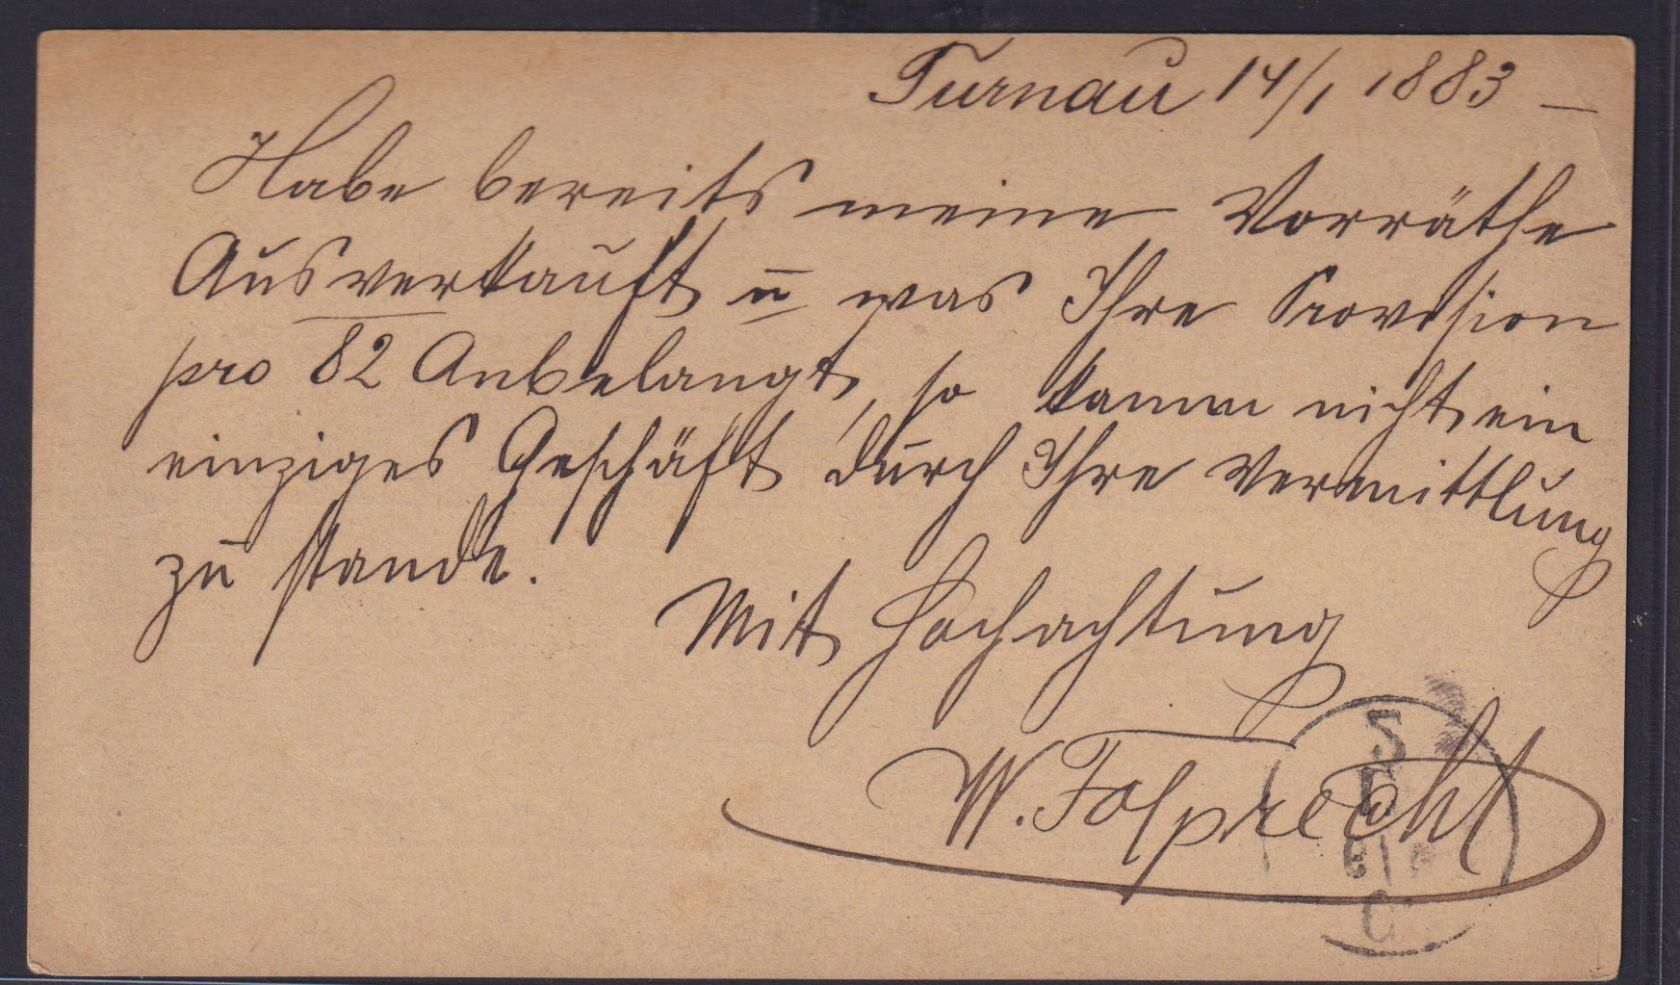 Turnau 14/1 1883 —
Habe bereits meine Vorräthe
Ausverkauft u was Ihre Provision
pro 82 Anbelangt, so kamm nicht ein
einziges Geschäft durch Ihre Vermittlung
zu stande.
Mit Hochachtung
W. Folprecht